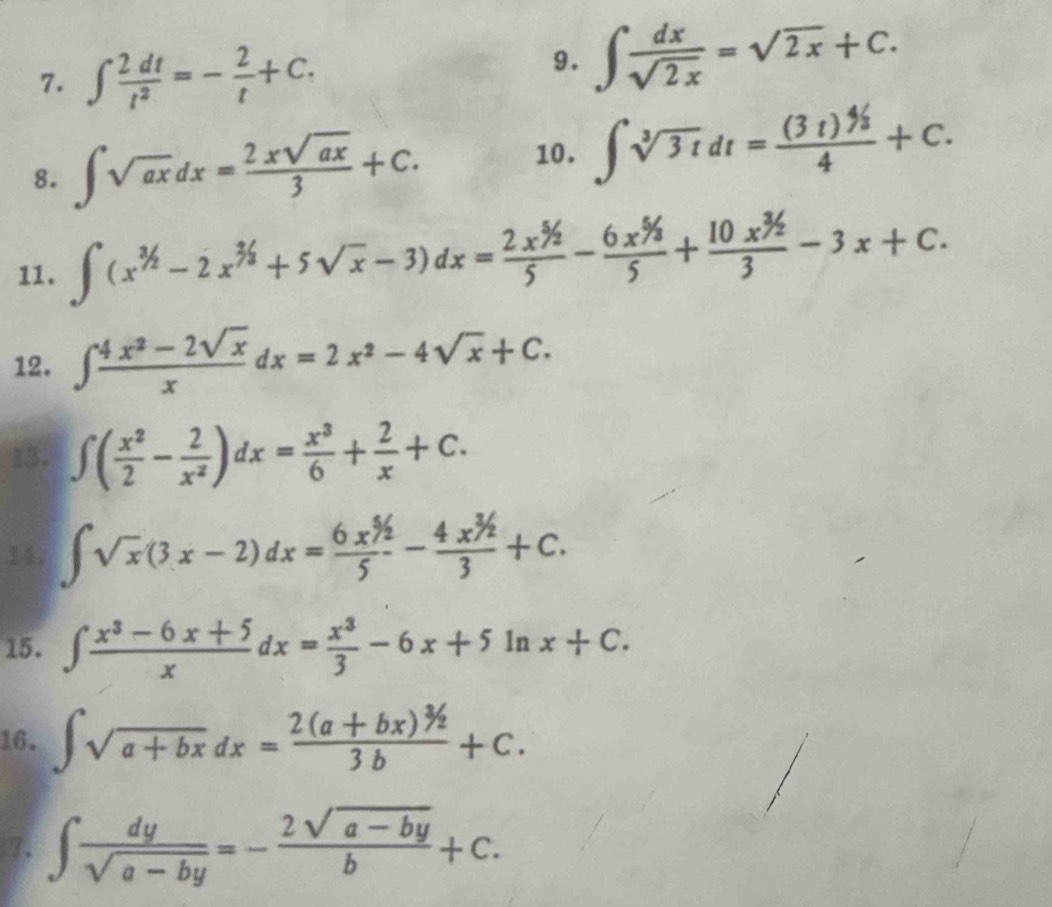 7. ∫ 2 dt/t² = − 2/t + C.
8. ∫ √(ax) dx = 2 x√(ax)/3 + C.
9. ∫ dx/√(2 x) = √(2 x) + C.
10. ∫ ∛(3 t) dt = (3 t)^(4/3)/4 + C.
11. ∫ (x^(3/2) − 2 x^(2/3) + 5 √x − 3) dx = 2 x^(5/2)/5 − 6 x^(5/3)/5 + 10 x^(3/2)/3 − 3 x + C.
12. ∫ (4 x² − 2√x)/x dx = 2 x² − 4√x + C.
13. ∫ (x²/2 − 2/x²) dx = x³/6 + 2/x + C.
14. ∫ √x (3 x − 2) dx = 6 x^(5/2)/5 − 4 x^(3/2)/3 + C.
15. ∫ (x³ − 6 x + 5)/x dx = x³/3 − 6 x + 5 ln x + C.
16. ∫ √(a + bx) dx = 2 (a + bx)^(3/2)/(3 b) + C.
17. ∫ dy/√(a − by) = − 2 √(a − by)/b + C.